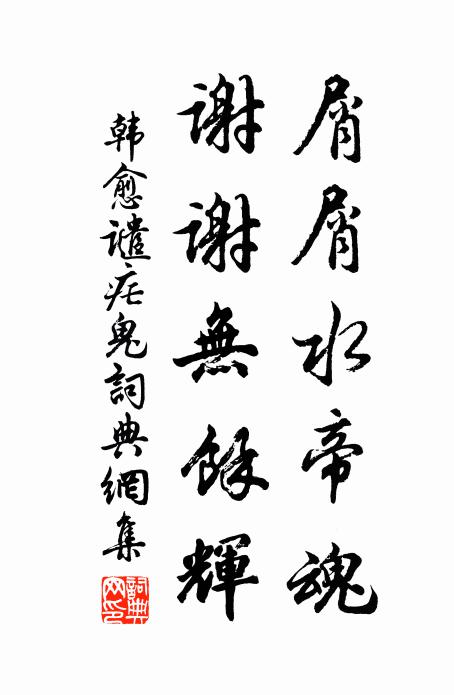 屑屑水帝魂
謝謝無餘輝
韩愈譴疟鬼詞典網集
詞典网印